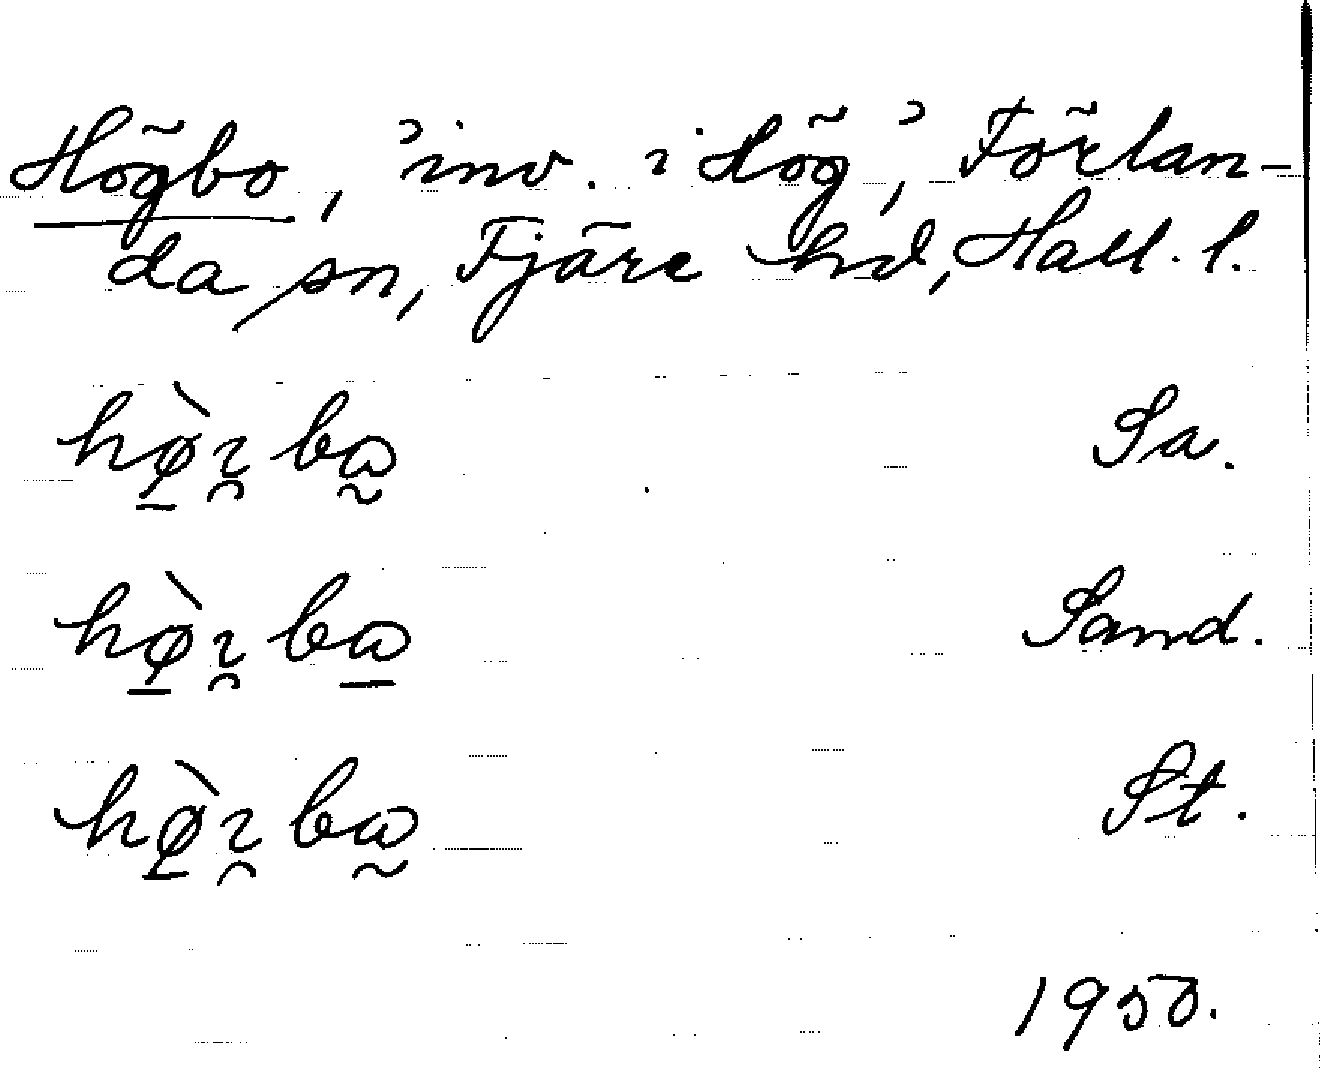 Högbo, ’inv. i Hög’, Förlan-
da sn, Fjäre hd, Hall. l.
hø̠̀ɪ̯ba̰ Sa.
hø̠̀ɪ̯ba̠ Sand.
hø̠̀ɪ̯ba̰ St.
1950.